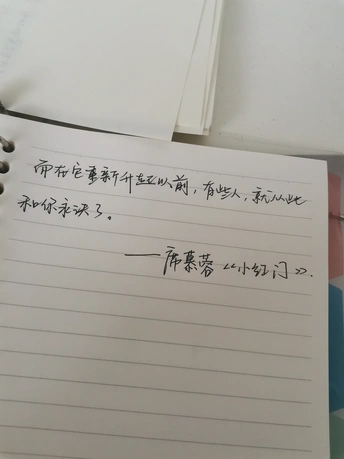 而在它重新升起以前，有些人，就从此
和你永诀了。
——席慕蓉《小红门》.